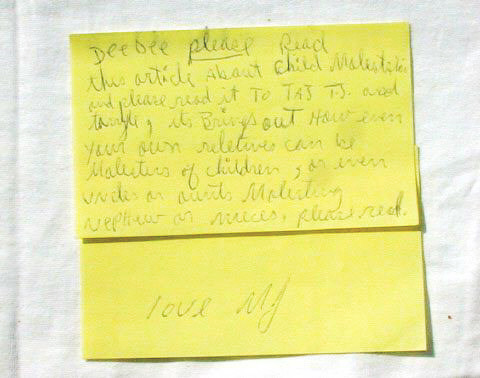 DeeDee please Read
this article About Child Molestation
and please read it TO TAJ TJ. and
taryll, its Brings out How even
your own reletives can be
Molesters of children, or even
uncles or aunts Molesting
nephew or nieces, please read.
love MJ